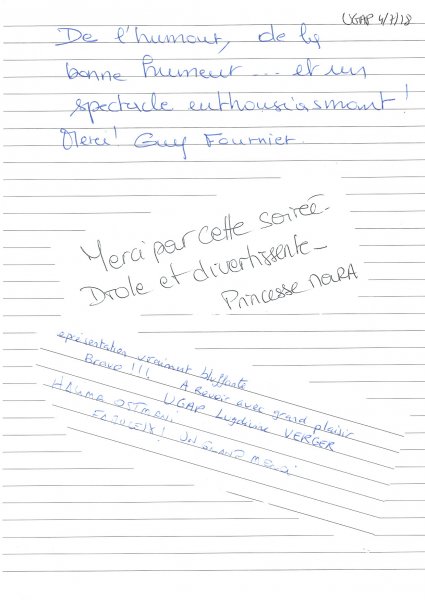 UGAP 4/7/18
De l'humour, de la
bonne humeur... et un
spectacle enthousiasmant!
Merci! Guy Fournier.
Merci par cette soirée-
Drole et divertissente-
Princesse NOURA
eprésentation vraiment bluffante
Bravo !!! A Revoir avec grand plaisir
UGAP VERGER
HALIMA
! Un GRAND Merci